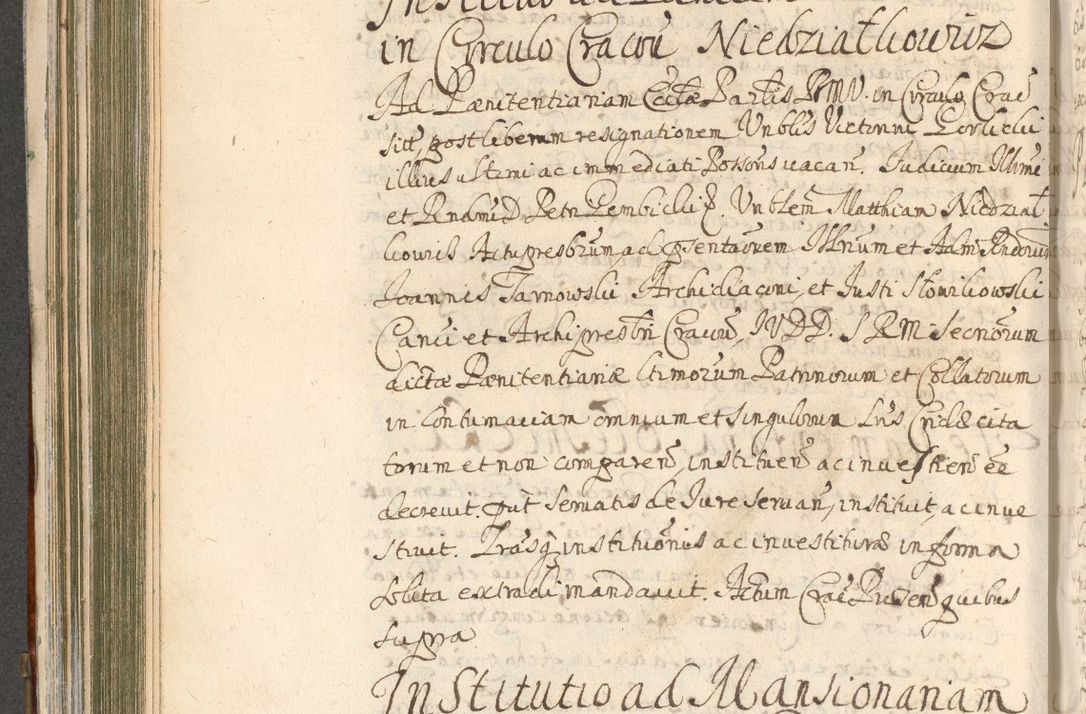 in Circulo Cracoū Niedziałkowicz
Ad Pænitentiariam Ecctæ Parlis BMV. in Circulo Crac̄
sitt, post liberam resignationem Vnblis Victorini Gorlicki
illius ultimi ac immediati Possoris vacan̄. Iudicium Illmi
et Rndmi D Petri Gembicki &. Vnblem Matthiam Niedział
kowik Actu presbrum ad psentaōrem Illnum et Adm Rndorum
Joannis Tarnowski Archidiaconi, et Justi Słowikowski
Canci et Archipresbri Cracoū, IVDD. SRM. Secriorum
dictæ Pænitentiariæ ltimorum Patronorum et Collatorum
in Contumaciam omnium et singulorum Lris Cridæ cita
torum et non comparen̄, instituen̄ ac investien̄ ee
decrevit. put servatis de Jure servan̄, instituit, ac inve
stivit. Lrasq institutionis ac investituræ in forma
solita extradi mandavit. Actum Crac̄ Præsen̄ quibus
supra
Institutio ad Mansionariam